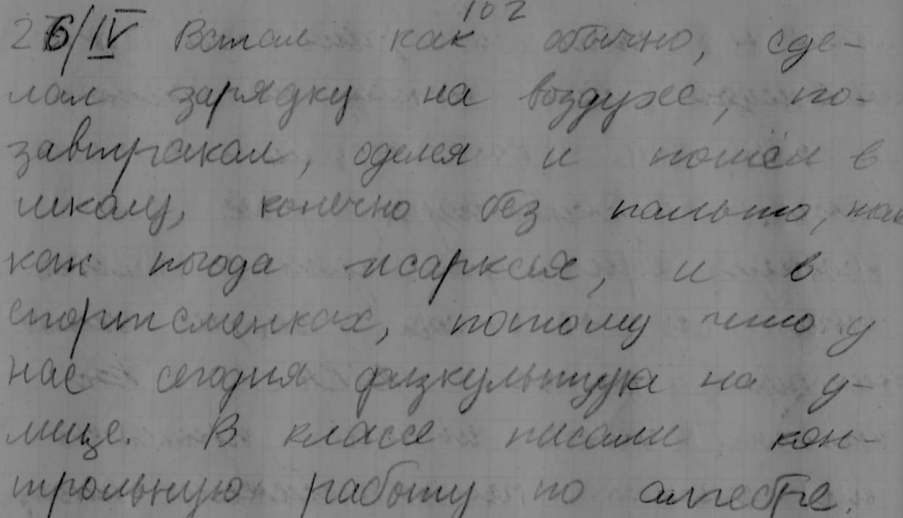 102
26/IV Встал как обычно, сде-
лал зарядку на воздухе, по-
завтракал, оделся и пошёл в
школу, конечно без пальто, так
как погода жаркая, и в
спортсменках, потому что у
нас сегодня физкультура на у-
лице. В классе писали кон-
трольную работу по алгебре.